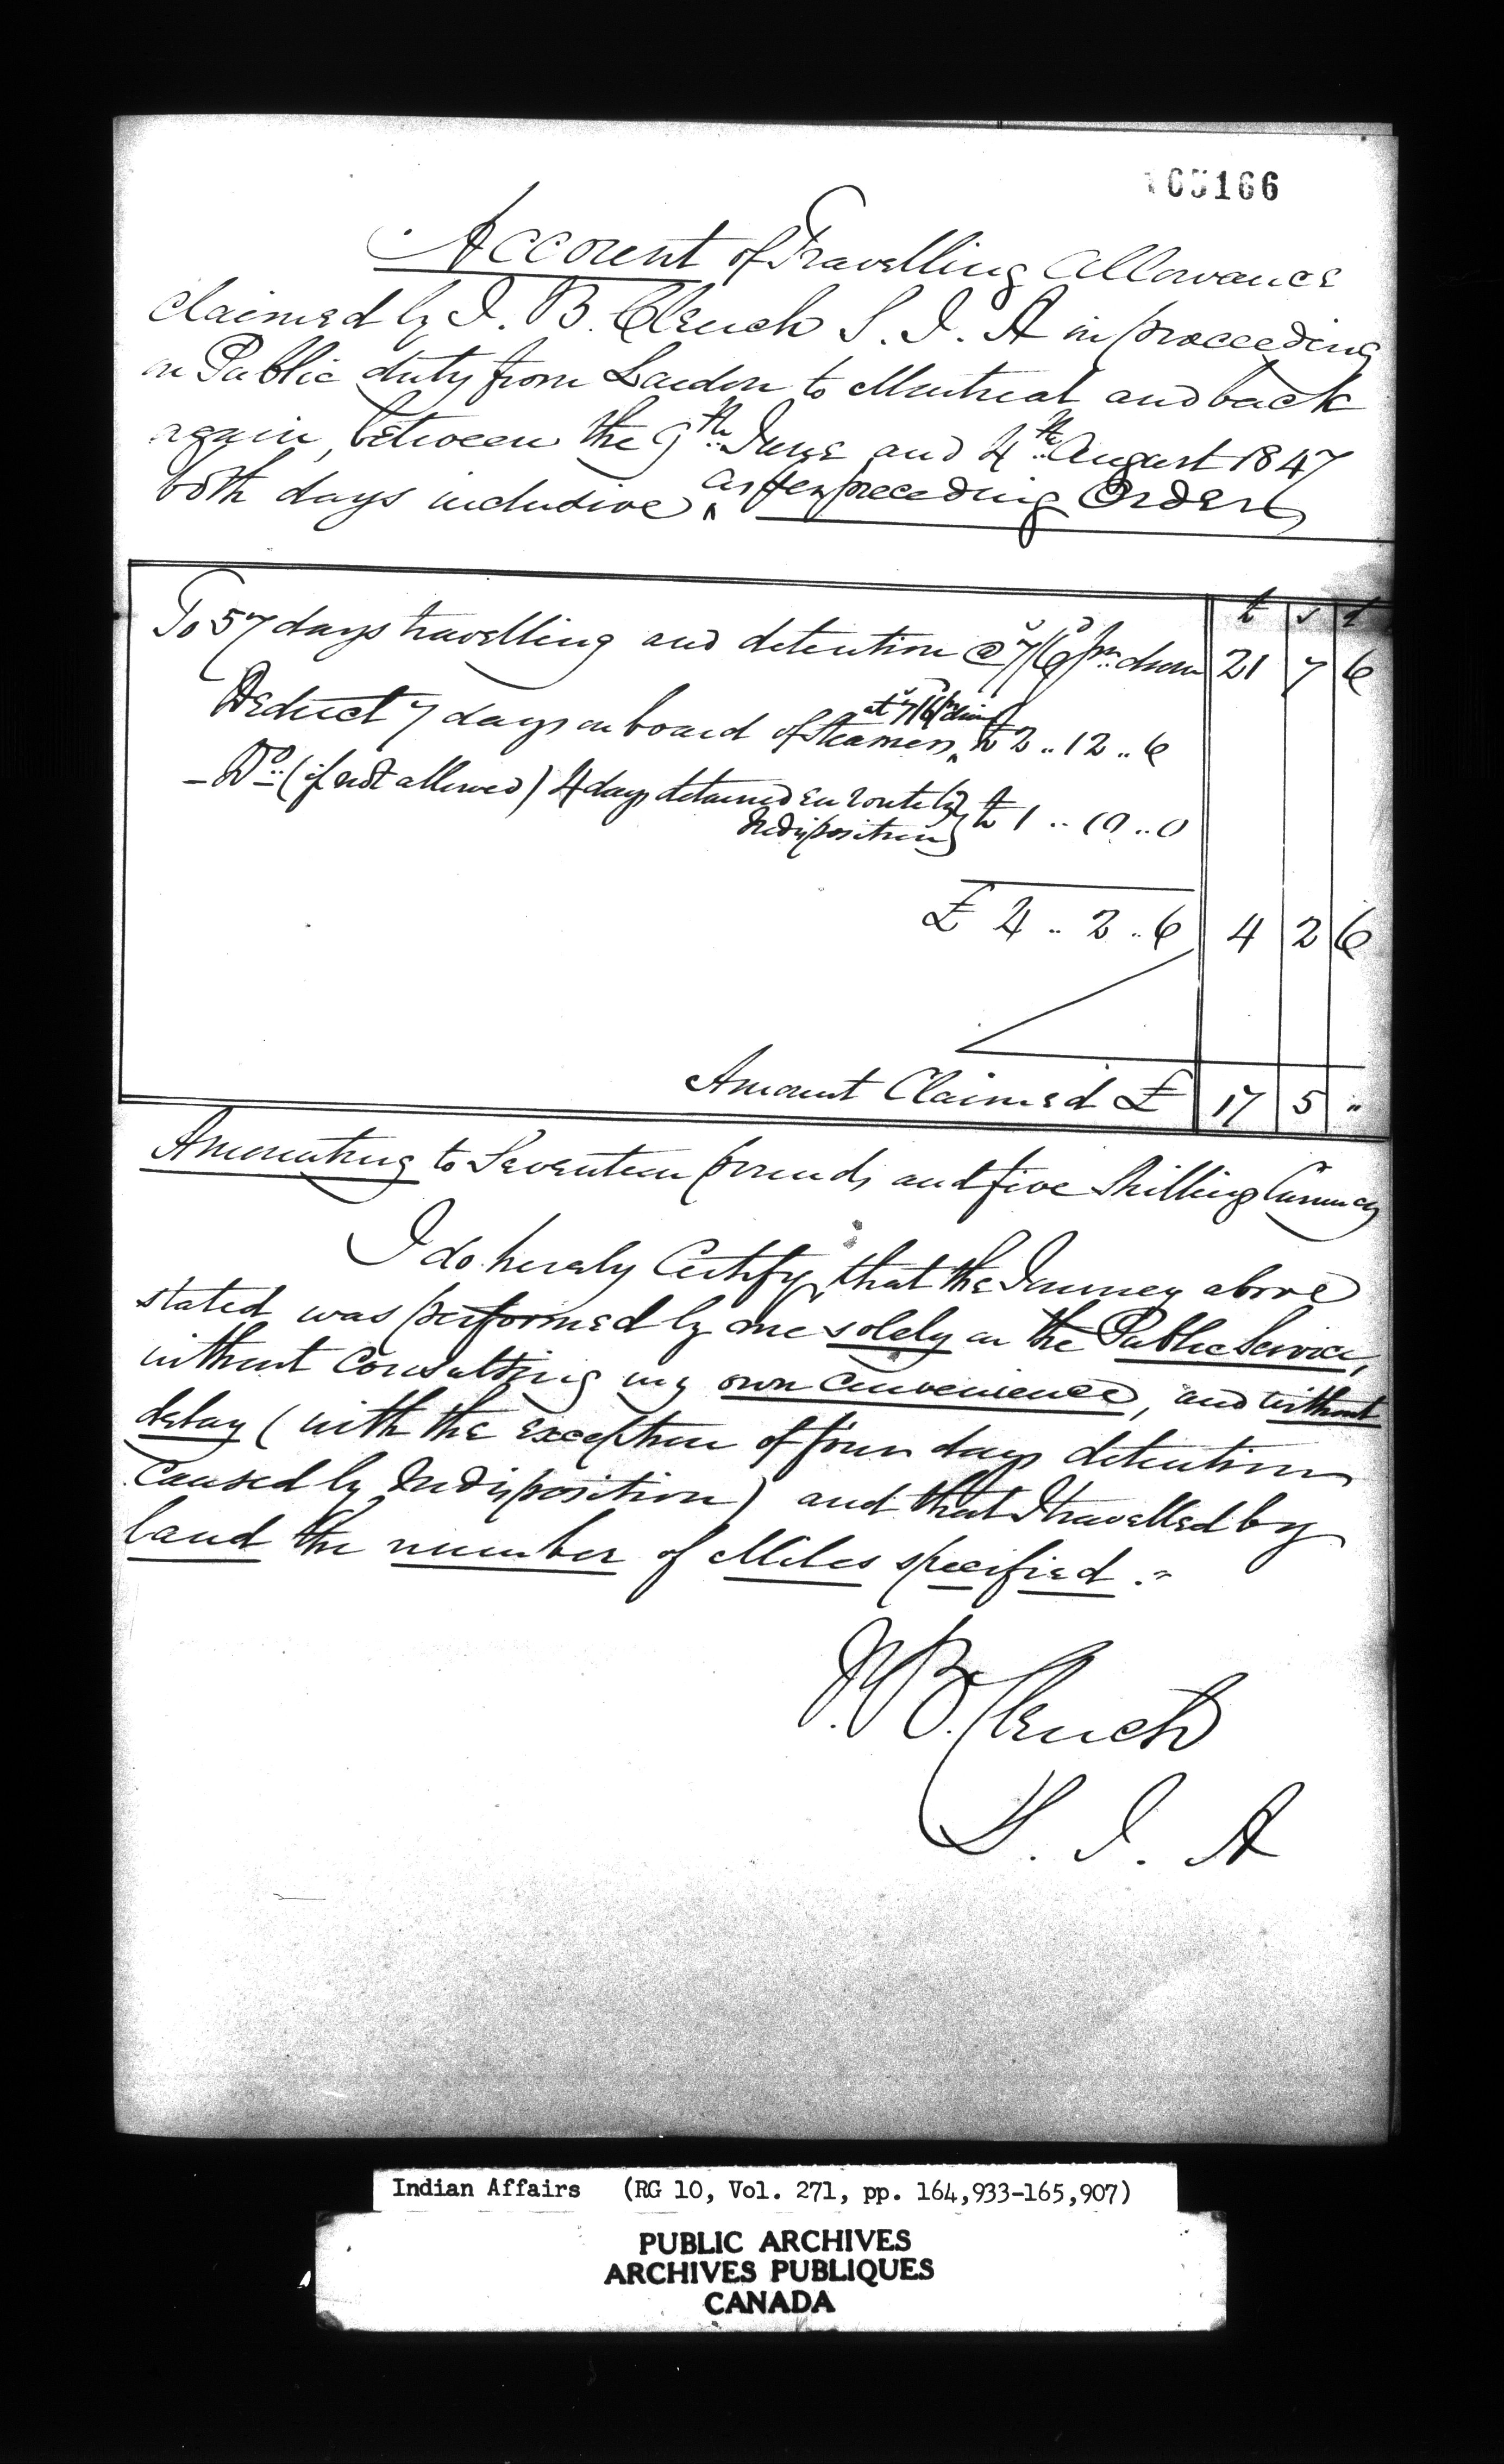 165166
Account of Travelling Allowance
claimed by J. B. Clench S. I. A in proceeding
on Public duty from London to Montreal and back
again, between the 9th June and 4th August 1847
both days inclusive, as per preceding Order
£ s d
To 57 days travelling and detention @ 7/6 pr. diem 21 7 6
Deduct 7 days on board of Steamers, at 7/6 pr diem £ 2 .. 12 .. 6
- Do (if not allowed) 4 days detained en route by
Indisposition £ 1 .. 10 .. 0
£ 4 .. 2 .. 6 4 2 6
Amount Claimed £ 17 5 "
Amounting to Seventeen pounds and five Shillings Currency
I do hereby Certify, that the Journey above
stated was performed by me solely on the Public Service,
without consulting my own convenience, and without
delay (with the exception of four days detention
caused by Indisposition) and that I travelled by
land the number of Miles specified."
J. B. Clench
S. I. A
Indian Affairs (RG 10, Vol. 271, pp. 164,933-165,907)
PUBLIC ARCHIVES
ARCHIVES PUBLIQUES
CANADA